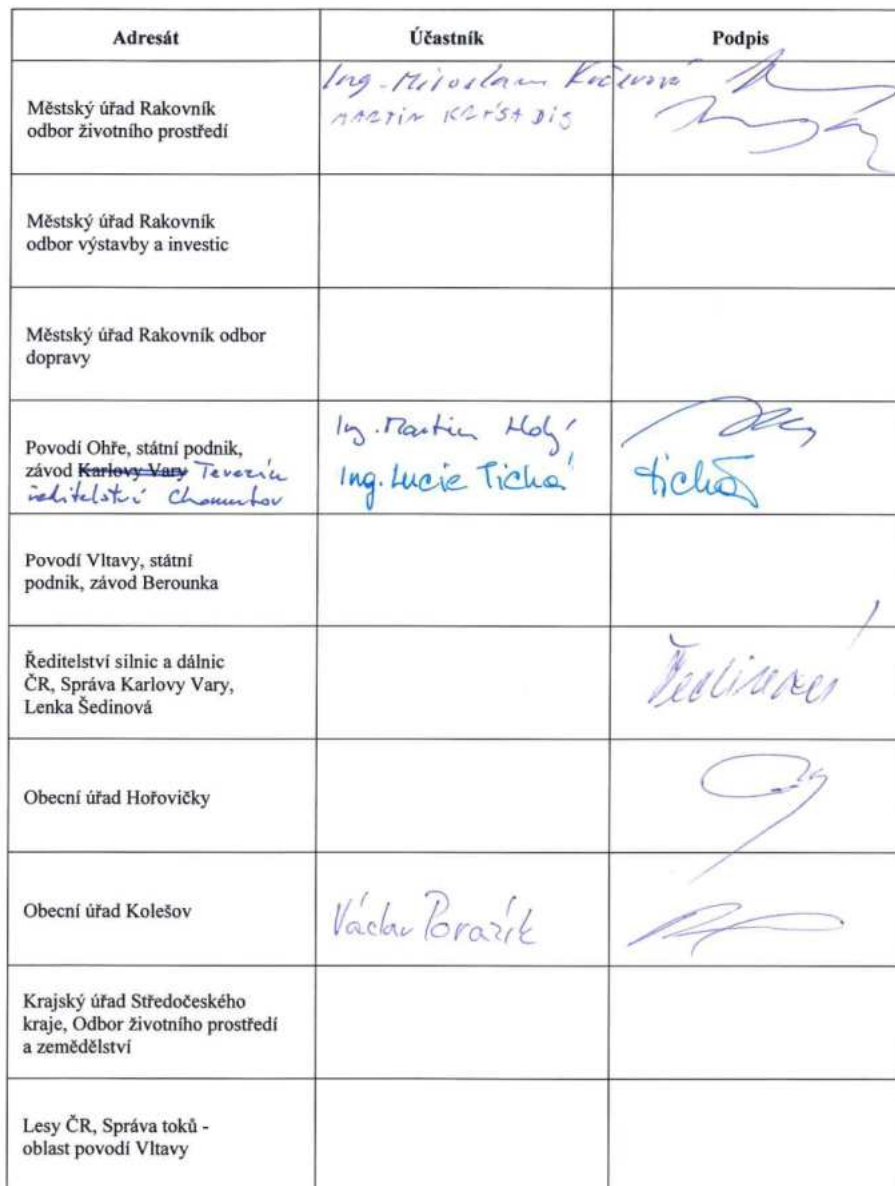 Adresát Účastník Podpis
Městský úřad Rakovník
odbor životního prostředí
Ing. Miroslava
MARTIN
Městský úřad Rakovník
odbor výstavby a investic
Městský úřad Rakovník odbor
dopravy
Povodí Ohře, státní podnik,
závod Karlovy Vary Terezín
ředitelství Chomutov
Ing. Martin Holý
Ing. Lucie Tichá
Tichá
Povodí Vltavy, státní
podnik, závod Berounka
Ředitelství silnic a dálnic
ČR, Správa Karlovy Vary,
Lenka Šedinová
Šedinová
Obecní úřad Hořovičky
Obecní úřad Kolešov
Václav Poražík
Krajský úřad Středočeského
kraje, Odbor životního prostředí
a zemědělství
Lesy ČR, Správa toků -
oblast povodí Vltavy